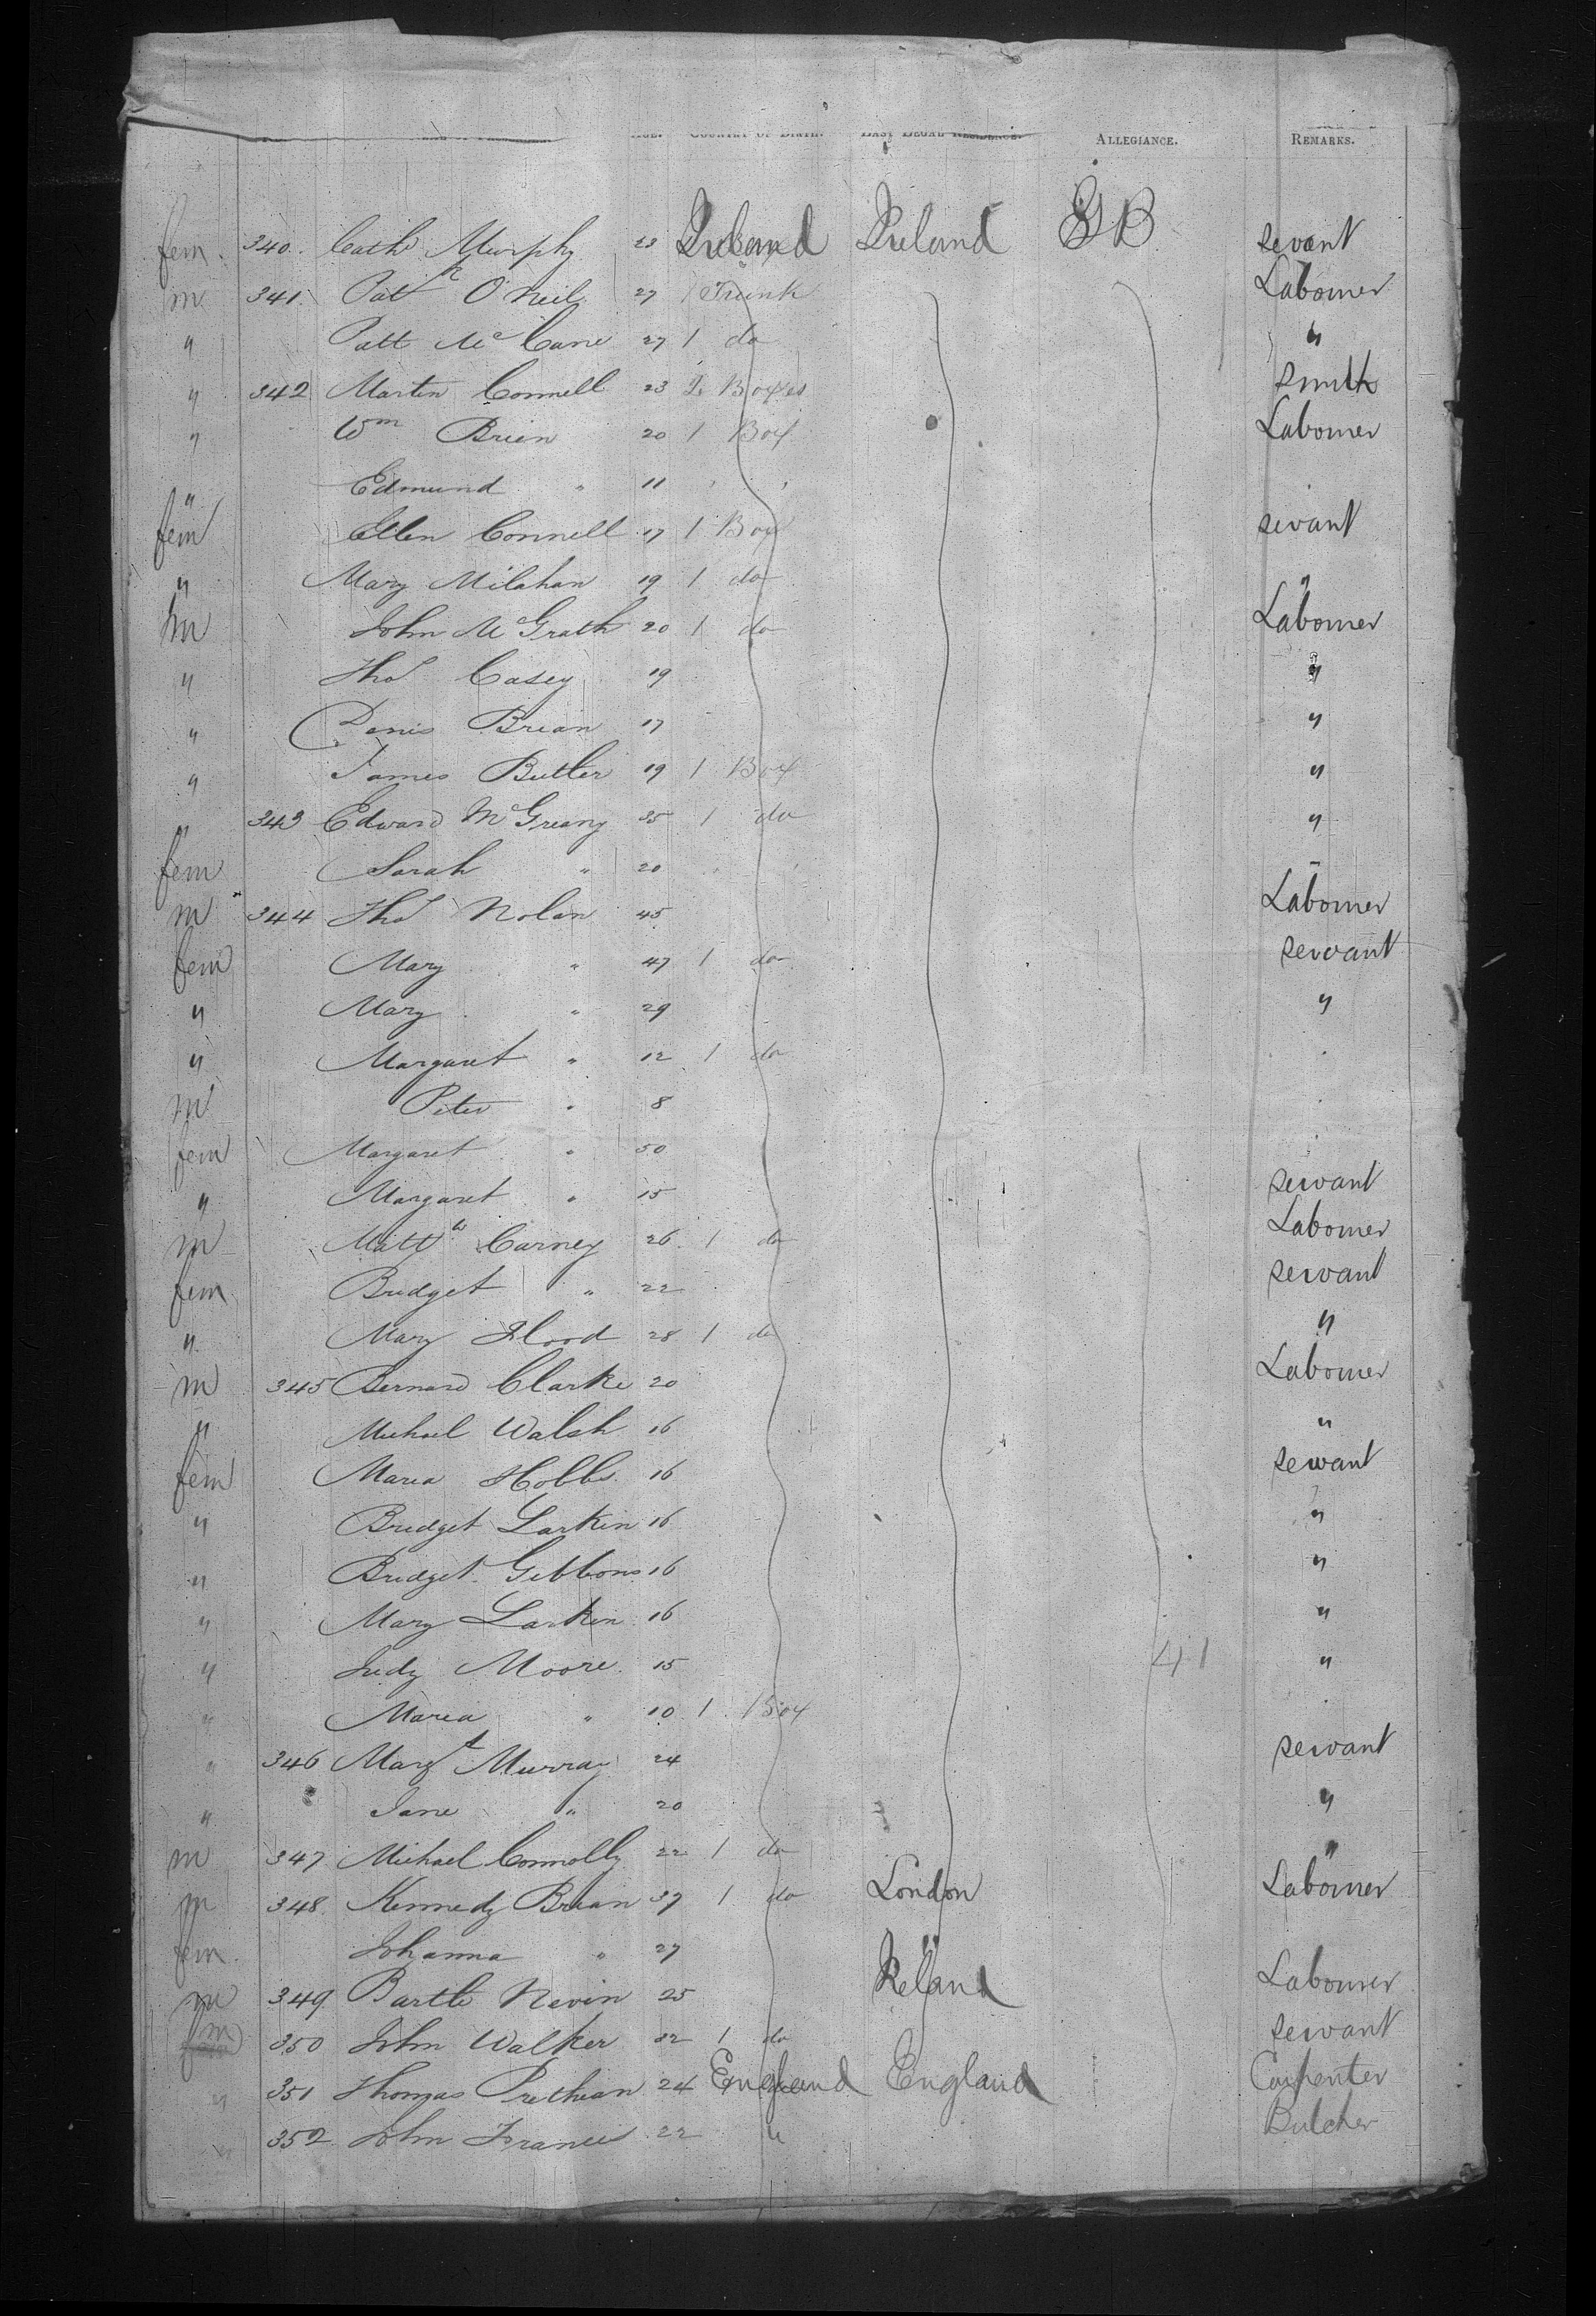 Age. Country of Birth. Last Legal Residence. Allegiance. Remarks.
fem 340. Cath Murphy 23 Ireland Ireland GB servant
m 341 Patt O Neil 27 1 Trunk Labourer
" Patt McCane 27 1 do "
" 342 Martin Connell 23 2 Boxes Smith
" Wm Brien 20 1 Box Labourer
" Edmund " 11 " "
fem Ellen Connell 17 1 Box servant
" Mary Milahan 19 1 do "
m John McGrath 20 1 do Labourer
" Thos Casey 19 "
" Denis Brean 17 "
" James Butler 19 1 Box "
" 343 Edward McGreany 35 1 do "
fem Sarah " 20 " "
m 344 Thos Nolan 45 Labourer
fem Mary " 47 1 do servant
" Mary " 29 "
" Margaret " 12 1 do
m Peter " 8
fem Margaret " 50
" Margaret " 15 servant
m Mattw Carney 26 1 do Labourer
fem Bridget " 22 servant
" Mary Flood 28 1 do "
m 345 Bernard Clarke 20 Labourer
" Michael Walsh 16 "
fem Maria Hobbs 16 servant
" Bridget Larkin 16 "
" Bridget Gibbons 16 "
" Mary Larkin 16 "
" Judy Moore 15 41 "
" Maria " 10 1 Box
" 346 Margt Murray 24 servant
" Jane " 20 "
m 347 Michael Connolly 22 1 do "
m 348 Kennedy Brean 37 1 do London Labourer
fem Johanna " 27 "
m 349 Bartle Nevin 25 Ireland Labourer
m 350 John Walker 32 1 do servant
" 351 Thomas Prethean 24 England England Carpenter
" 352 John Francis 22 " Butcher